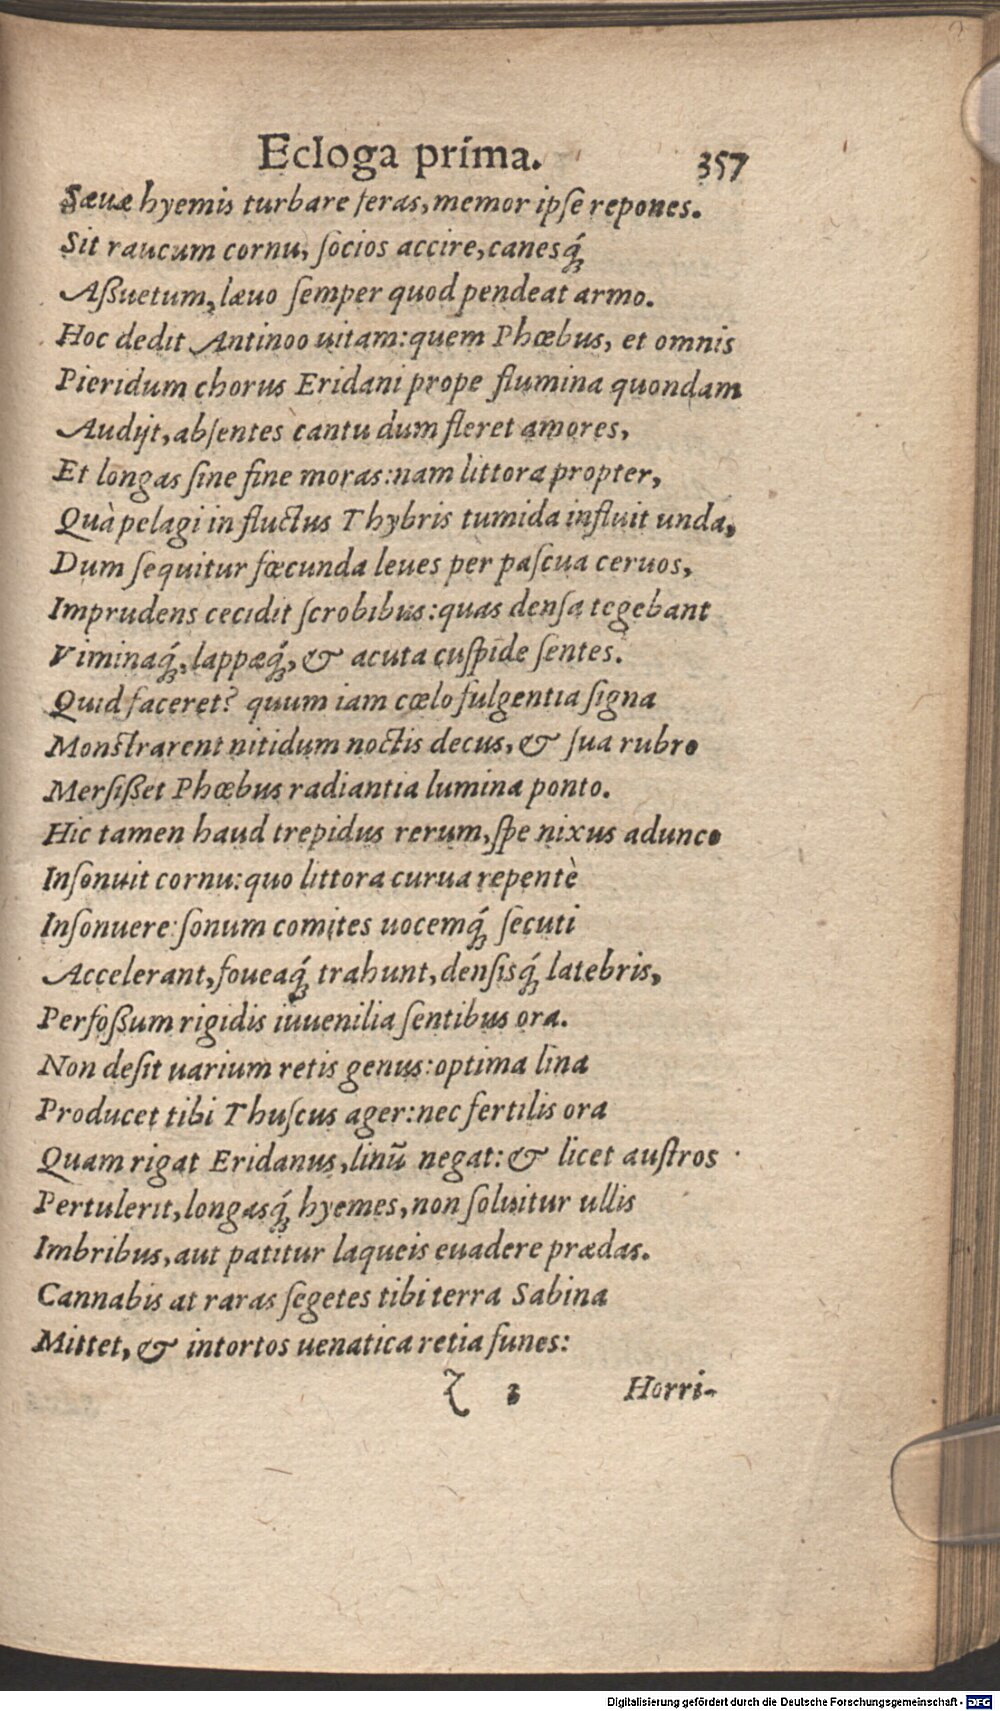 Ecloga prima. 357
Sæuæ hyemis turbare feras, memor ipſe repones.
Sit raucum cornu, ſocios accire, canesq́;
Aßuetum, læuo ſemper quod pendeat armo.
Hoc dedit Antinoo uitam: quem Phœbus, et omnis
Pieridum chorus Eridani prope flumina quondam
Audijt, abſentes cantu dum fleret amores,
Et longas ſine fine moras: nam littora propter,
Quà pelagi in fluctus Thybris tumida influit unda,
Dum ſequitur fœcunda leues per paſcua ceruos,
Imprudens cecidit ſcrobibus: quas denſa tegebant
Viminaq́;, lappæq́;, & acuta cuſpide ſentes.
Quid faceret? quum iam cœlo fulgentia ſigna
Monſtrarent nitidum noctis decus, & ſua rubro
Merſißet Phœbus radiantia lumina ponto.
Hic tamen haud trepidus rerum, ſpe nixus adunco
Inſonuit cornu: quo littora curua repentè
Inſonuere: ſonum comites uocemq́; ſecuti
Accelerant, foueaq́; trahunt, denſisq́; latebris,
Perfoßum rigidis iuuenilia ſentibus ora.
Non deſit uarium retis genus: optima lina
Producet tibi Thuſcus ager: nec fertilis ora
Quam rigat Eridanus, linū negat: & licet auſtros
Pertulerit, longasq́; hyemes, non ſoluitur ullis
Imbribus, aut patitur laqueis euadere prædas.
Cannabis at raras ſegetes tibi terra Sabina
Mittet, & intortos uenatica retia funes:
Z 3 Horri-
Digitalisierung gefördert durch die Deutsche Forschungsgemeinschaft - DFG